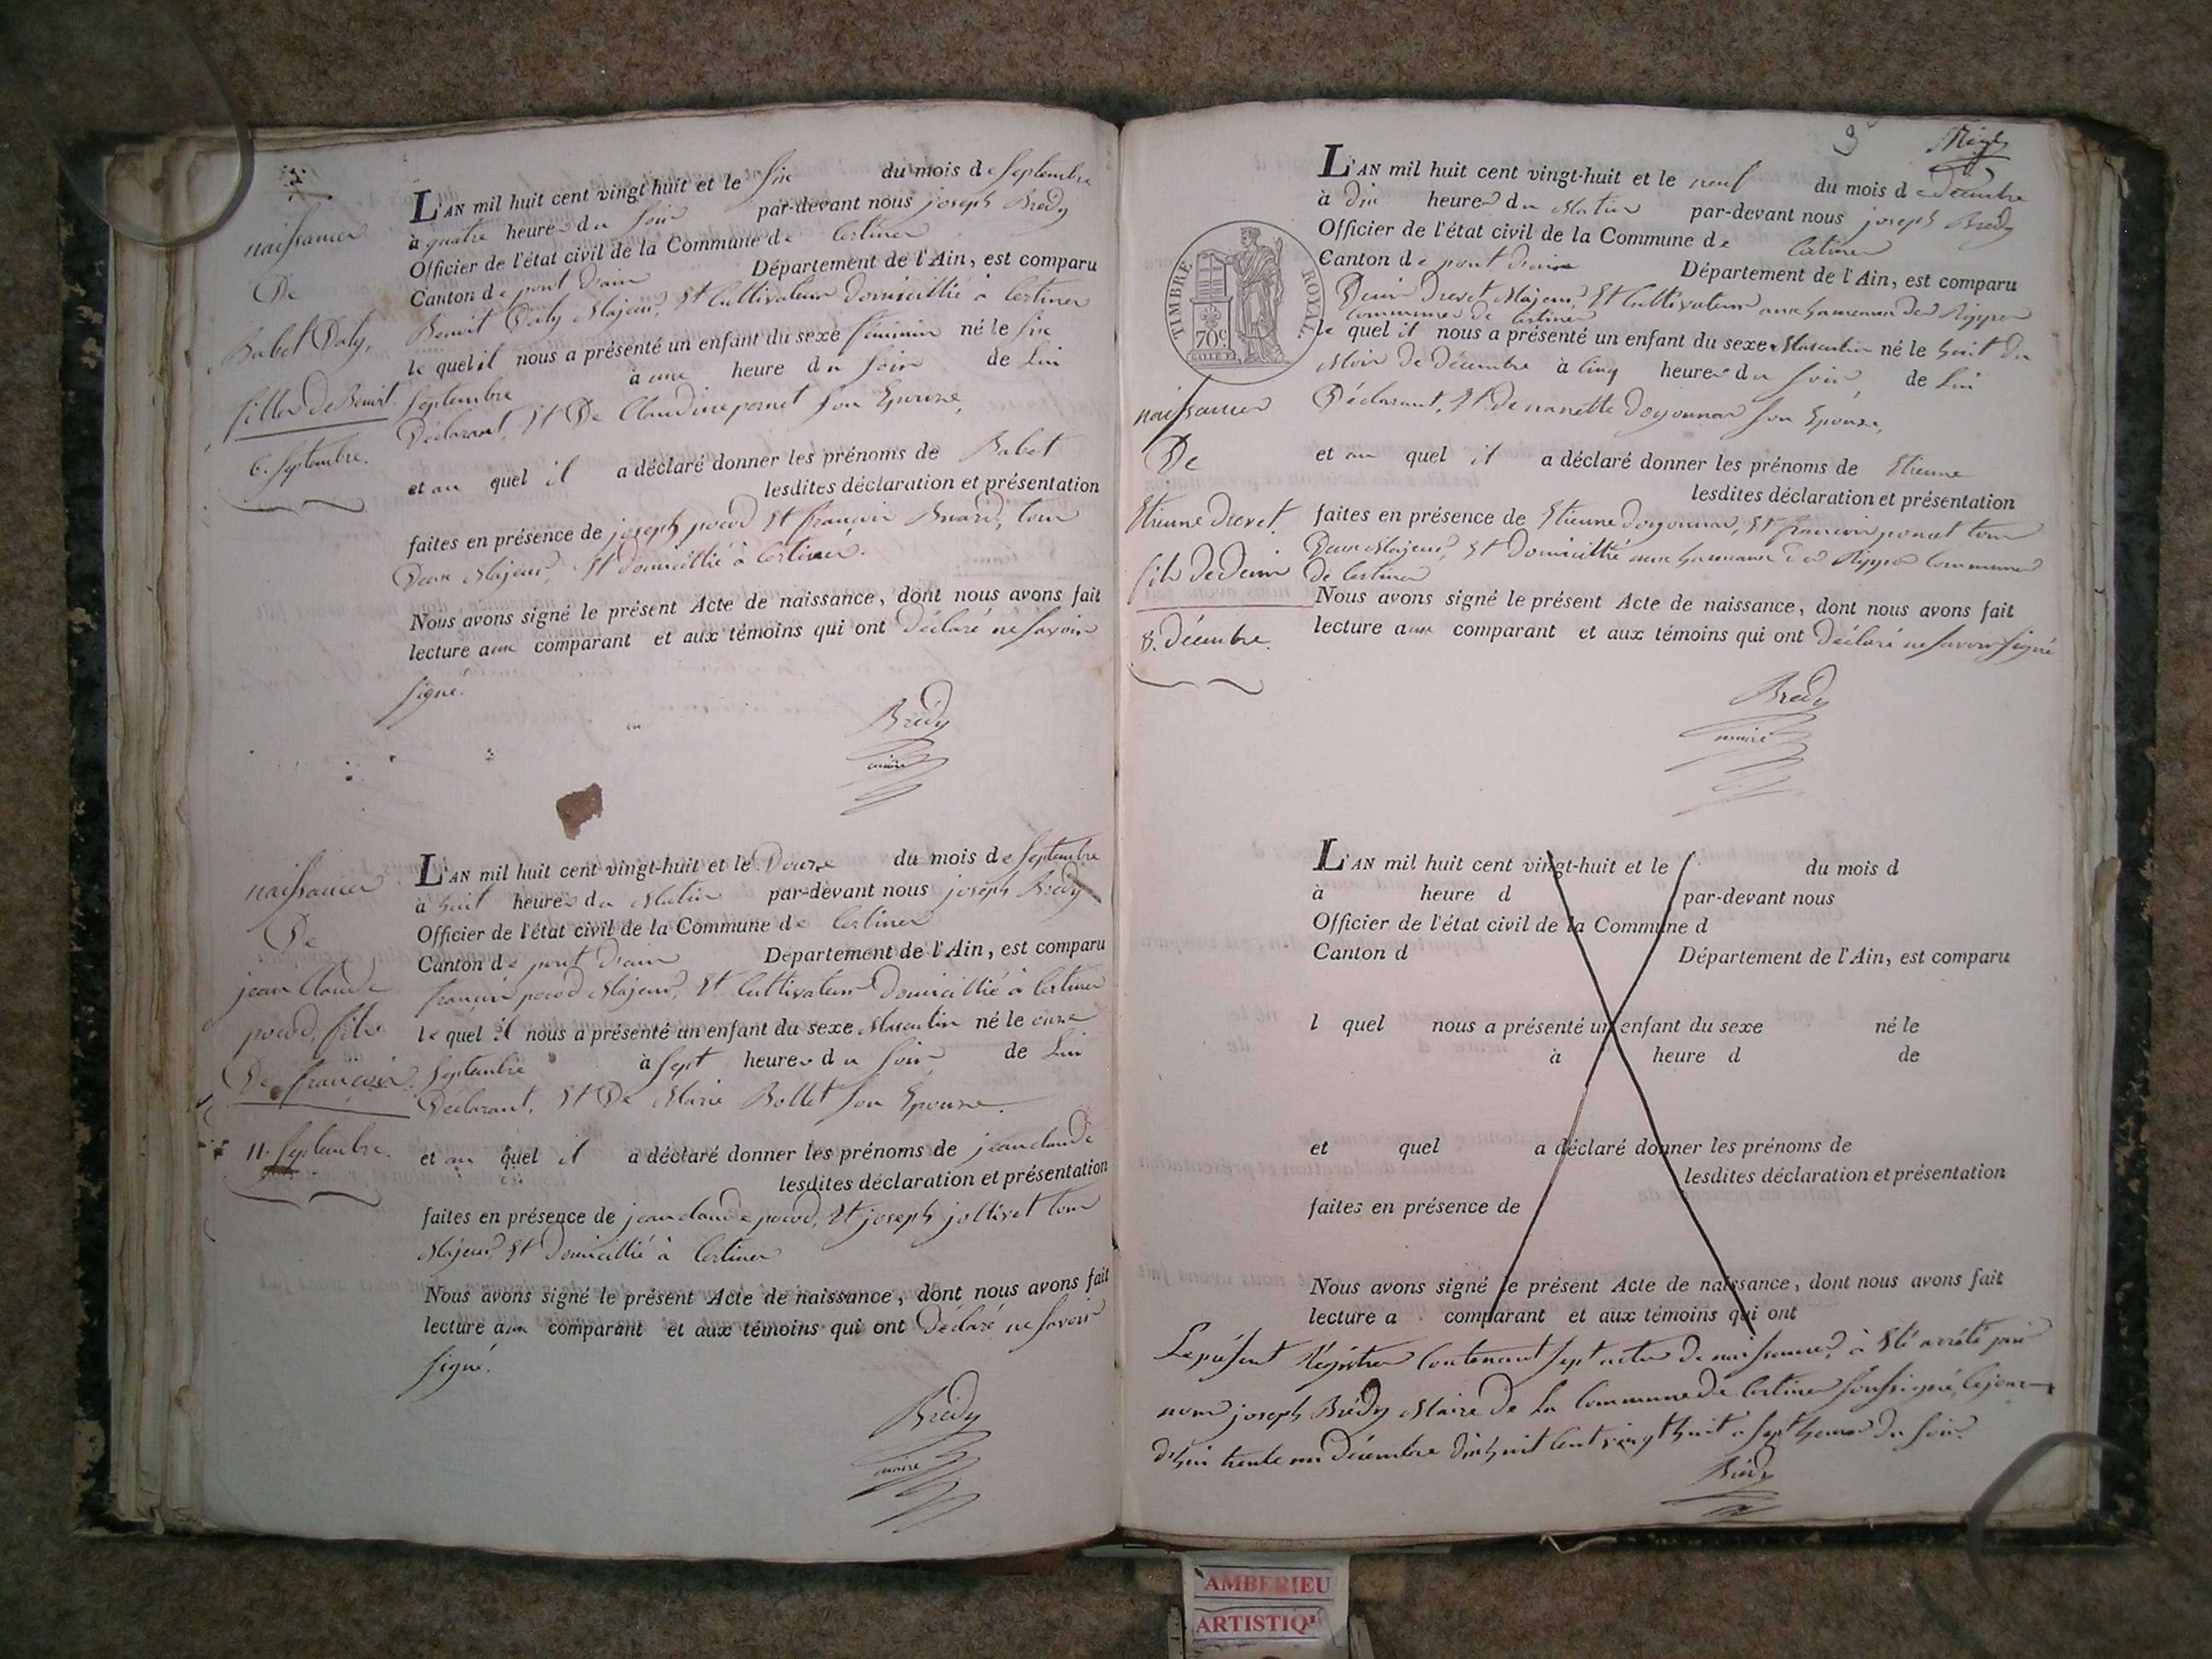 naissance
De
Babet Daly,
fille de Benoit.
6. septembre.
L'AN mil huit cent vingt-huit et le six du mois de septembre
à quatre heures du soir par-devant nous joseph Bredy
Officier de l'état civil de la Commune de Certines
Canton de pont d'ain Département de l'Ain, est comparu
Benoit Daly Majeur, Et Cultivateur Domicillié à Certines
le quel il nous a présenté un enfant du sexe féminin né le six
septembre à une heure du soir de Lui
Déclarant, Et De Claudine pernet son Epouse,
et au quel il a déclaré donner les prénoms de Babet
lesdites déclaration et présentation
faites en présence de joseph pocod Et françois tous
Deux Majeurs, Et Domicillié à Certines.
Nous avons signé le présent Acte de naissance, dont nous avons fait
lecture aux comparant et aux témoins qui ont Déclaré ne savoir
signé.
Bredy
maire
naissance
De
jean Claude
pocod, fils
De françois.
11. Septembre.
L'AN mil huit cent vingt-huit et le Douze du mois de septembre
à huit heures du Matin par-devant nous joseph Bredy
Officier de l'état civil de la Commune de Certines
Canton de pont d'ain Département de l'Ain, est comparu
françois pocod Majeur, Et Cultivateur Domicillié à Certines
le quel il nous a présenté un enfant du sexe Masculin né le onze
Septembre à sept heures du soir de Lui
Déclarant, Et De Marie Bollet son Epouse.
et au quel il a déclaré donner les prénoms de jean claude
lesdites déclaration et présentation
faites en présence de jean claude pocod, Et joseph jollivet tous
Majeurs, Et Domicillié à Certines
Nous avons signé le présent Acte de naissance, dont nous avons fait
lecture aux comparant et aux témoins qui ont Déclaré ne savoir
signé.
Bredy
maire
TIMBRE ROYAL
70c
naissance
De
Etienne Drevet.
fils de denis
8. Décembre.
L'AN mil huit cent vingt-huit et le neuf du mois de Décembre
à Dix heures du Matin par-devant nous joseph Bredy
Officier de l'état civil de la Commune de Certines
Canton de pont d'ain Département de l'Ain, est comparu
Denis Drevet Majeur, Et Cultivateur aux hameaux des Rippes
Commune de Certines
le quel il nous a présenté un enfant du sexe Masculin né le huit du
Mois de Décembre à Cinq heures du soir, de Lui
Déclarant, Et de nanette Doyonnas son Epouse,
et au quel il a déclaré donner les prénoms de Etienne
lesdites déclaration et présentation
faites en présence de Etienne Doyonnas, Et françois poncet tous
Deux Majeurs, Et Domicillié aux hameaux des Rippes Commune
de Certines
Nous avons signé le présent Acte de naissance, dont nous avons fait
lecture aux comparant et aux témoins qui ont Déclaré ne savoir signé
Bredy
maire
L'AN mil huit cent vingt-huit et le du mois d
à heure d par-devant nous
Officier de l'état civil de la Commune d
Canton d Département de l'Ain, est comparu
l quel nous a présenté un enfant du sexe né le
à heure d de
et quel a déclaré donner les prénoms de
lesdites déclaration et présentation
faites en présence de
Nous avons signé le présent Acte de naissance, dont nous avons fait
lecture a comparant et aux témoins qui ont
Le présent Régistre Contenant sept actes de naissances, à Eté arrété par
nous joseph Brédy Maire De La Commune De Certines soussigné, Cejour
d'hui trente un Décembre dix huit Cent vingt huit a sept heures du soir.
Brédy
AMBERIEU
ARTISTIQU